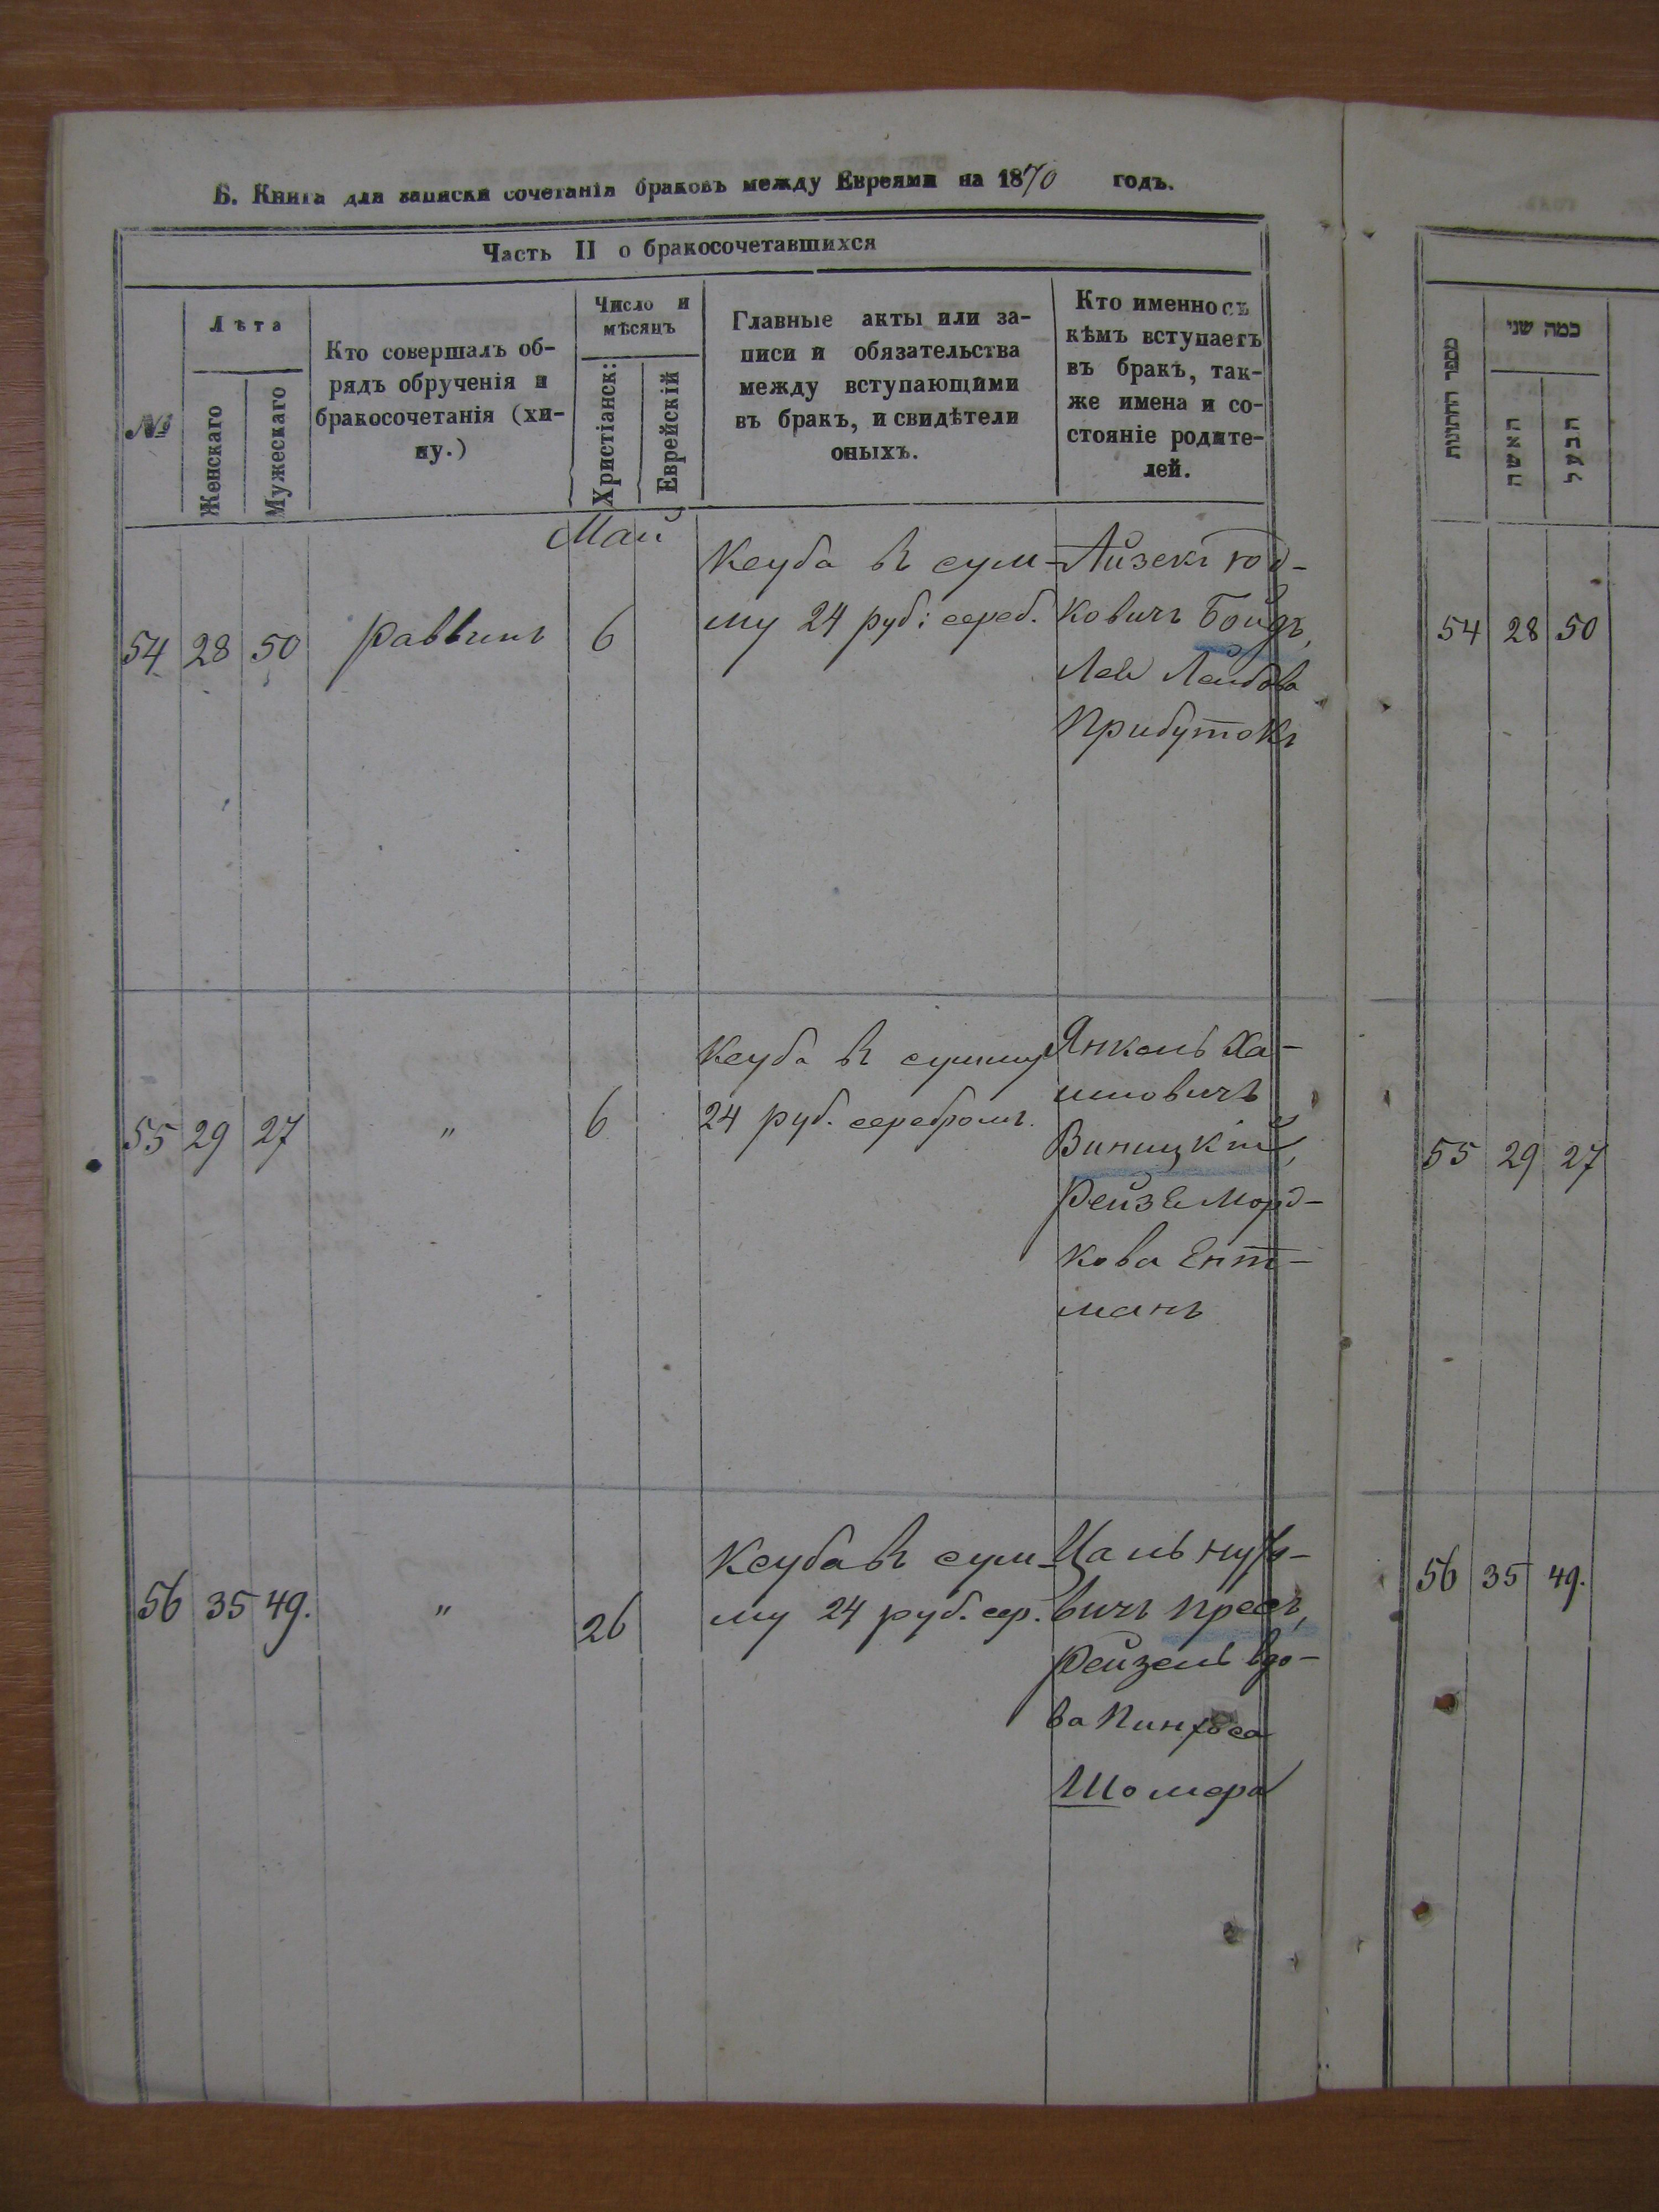 Б. Книга для записки сочетанія браковъ между Евреями на 1870 годъ.
Часть II о бракосочетавшихся
№
Лѣта
Женскаго
Мужескаго
Кто совершалъ об-
рядъ обрученія и
бракосочетанія (хи-
пу.)
Число и
мѣсяцъ
Христіанск:
Еврейскій
Главные акты или за-
писи и обязательства
между вступающими
въ бракъ, и свидѣтели
оныхъ.
Кто именно съ
кѣмъ вступаетъ
въ бракъ, так-
же имена и со-
стояніе родите-
лей.
Май
54 28 50 Раввинъ 6
Кеуба въ сум-
му 24 руб: сереб.
Айзекъ Юд-
ковичъ Бойдъ,
Лея Лейбова
Прибутокъ
55 29 27 " 6
Кеуба въ сумму
24 руб. серебромъ.
Янкель Ха-
имовичъ
Виницкій,
Рейзе Морд-
кова Ент-
манъ
56 35 49. " 26
Кеуба въ сум-
му 24 руб. сер.
вичъ Пресъ,
Рейзель вдо-
ва Пинхоса
Шомера
מספר החתונות
כמה שני
האשה
הבעל
54 28 50
55 29 27
56 35 49.